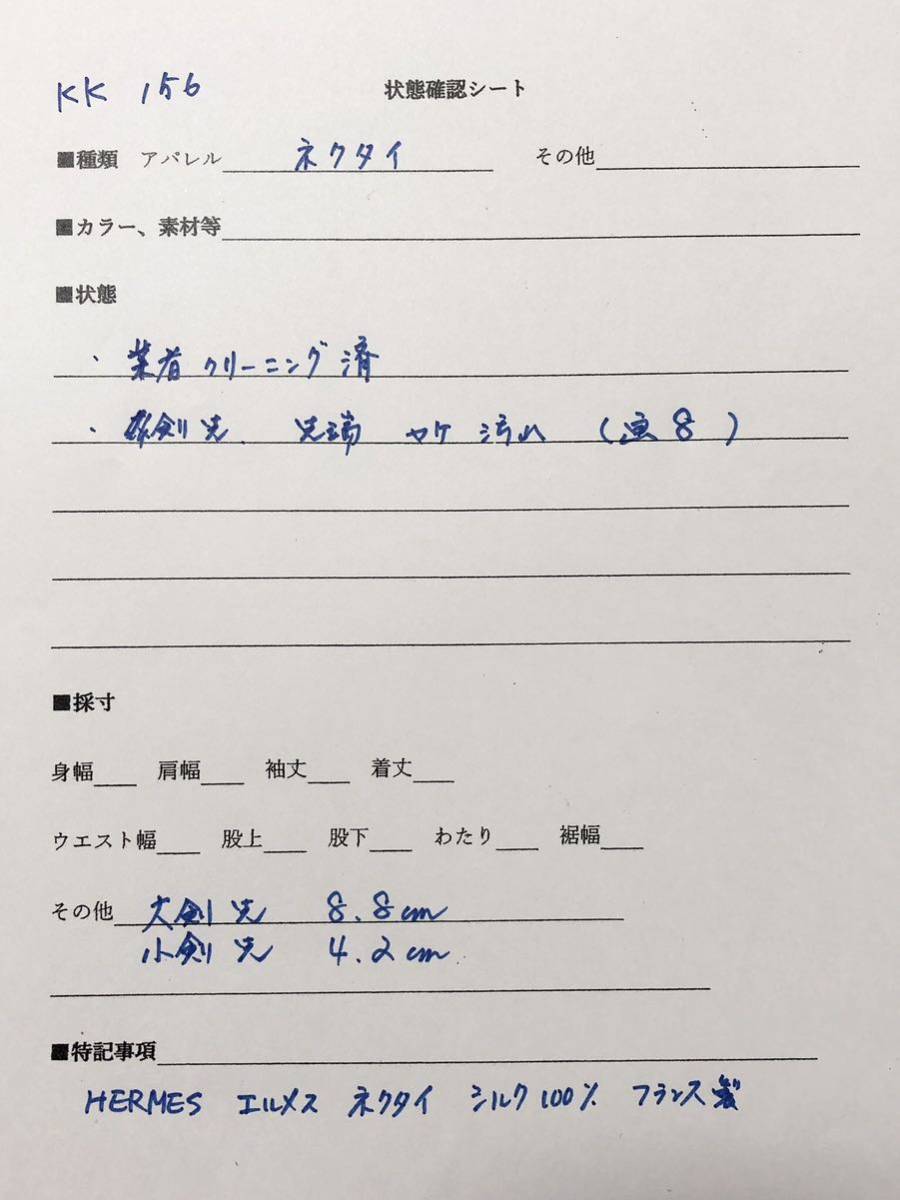 KK 156 状態確認シート
■種類 アパレル ネクタイ その他
■カラー、素材等
■状態
・業者クリーニング済
・剣先 先端 ヤケ 汚れ (画8)
■採寸
身幅 肩幅 袖丈 着丈
ウエスト幅 股上 股下 わたり 裾幅
その他 大剣先 8.8cm
小剣先 4.2cm
■特記事項
HERMES エルメス ネクタイ シルク100% フランス製